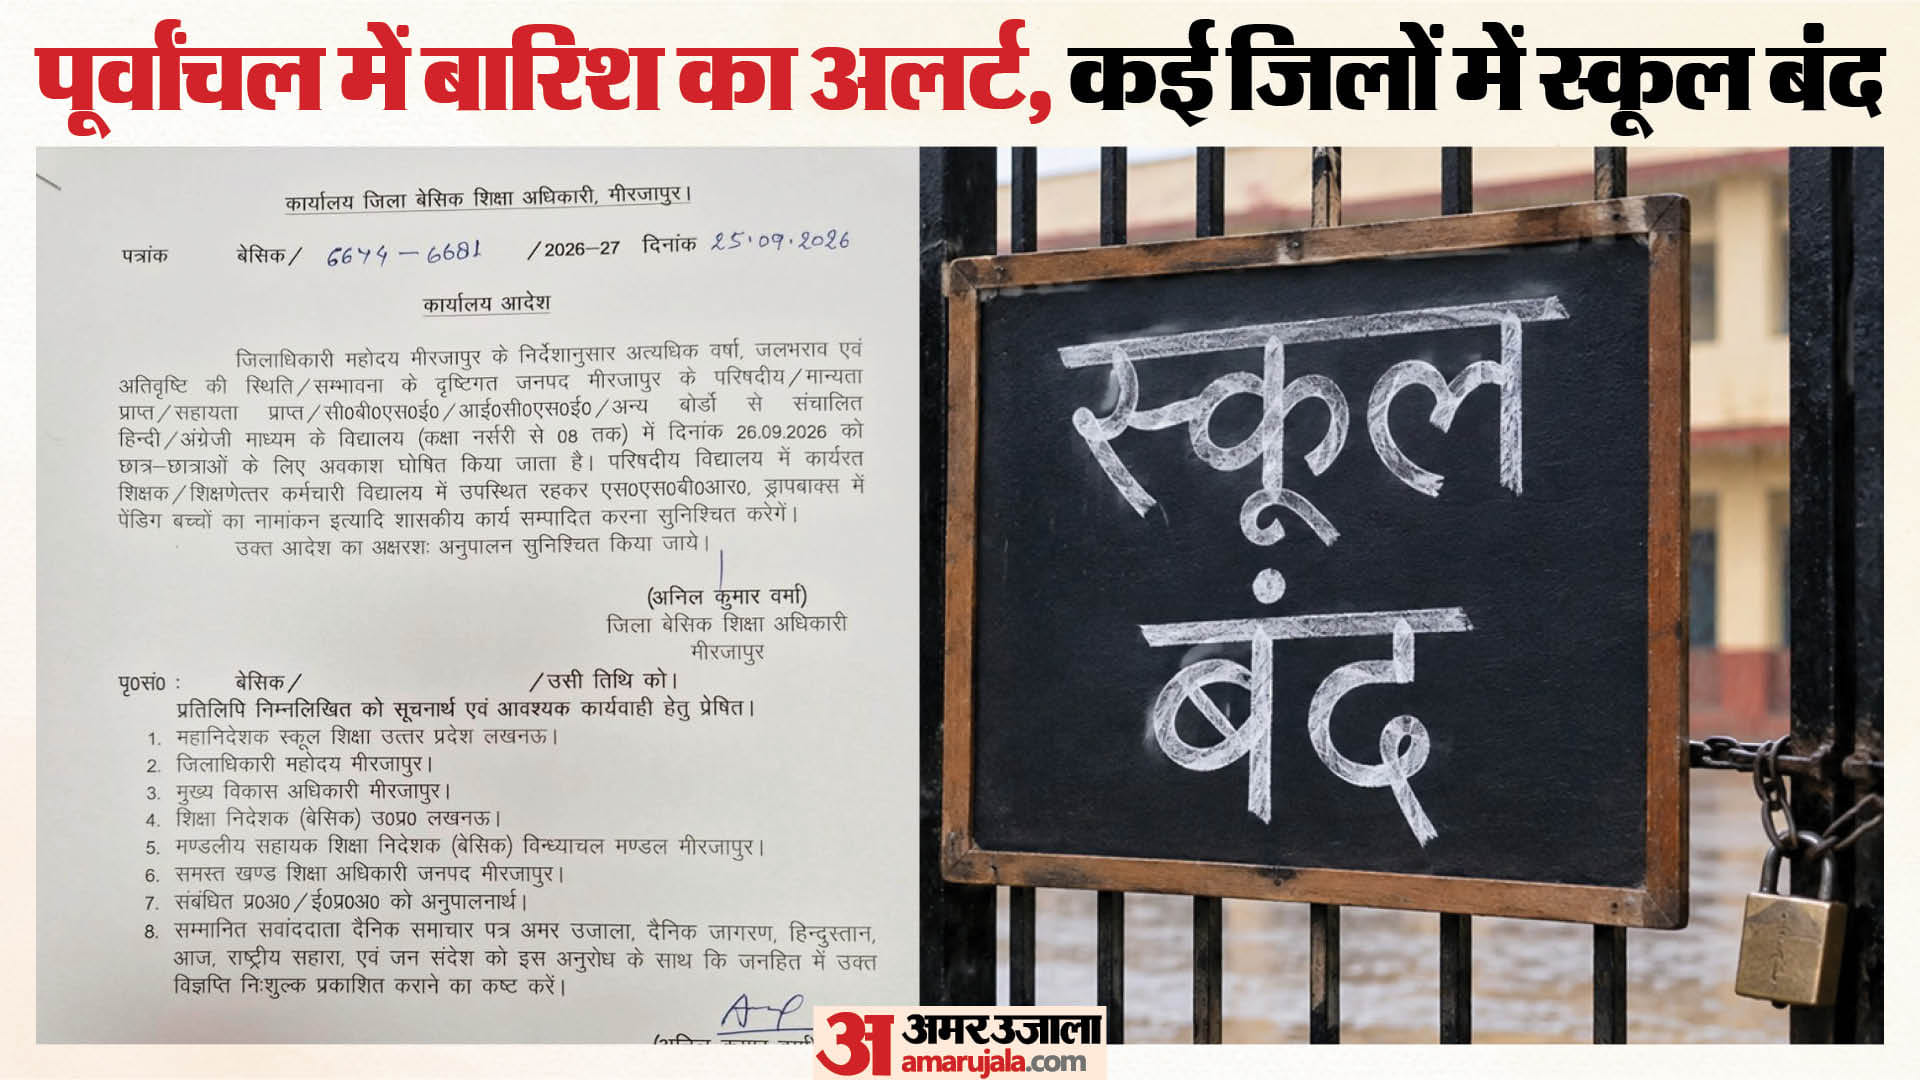 पूर्वांचल में बारिश का अलर्ट, कई जिलों में स्कूल बंद
कार्यालय जिला बेसिक शिक्षा अधिकारी, मीरजापुर।
पत्रांक बेसिक/ 6674-6681 /2026-27 दिनांक 25.09.2026
कार्यालय आदेश
जिलाधिकारी महोदय मीरजापुर के निर्देशानुसार अत्यधिक वर्षा, जलभराव एवं
अतिवृष्टि की स्थिति/सम्भावना के दृष्टिगत जनपद मीरजापुर के परिषदीय/मान्यता
प्राप्त/सहायता प्राप्त/सी0बी0एस0ई0/आई0सी0एस0ई0/अन्य बोर्डो से संचालित
हिन्दी/अंग्रेजी माध्यम के विद्यालय (कक्षा नर्सरी से 08 तक) में दिनांक 26.09.2026 को
छात्र-छात्राओं के लिए अवकाश घोषित किया जाता है। परिषदीय विद्यालय में कार्यरत
शिक्षक/शिक्षणेत्तर कर्मचारी विद्यालय में उपस्थित रहकर एस0एस0बी0आर0, ड्रापबाक्स में
पेंडिग बच्चों का नामांकन इत्यादि शासकीय कार्य सम्पादित करना सुनिश्चित करेगें।
उक्त आदेश का अक्षरशः अनुपालन सुनिश्चित किया जाये।
(अनिल कुमार वर्मा)
जिला बेसिक शिक्षा अधिकारी
मीरजापुर
पृ0सं0 : बेसिक/ /उसी तिथि को।
प्रतिलिपि निम्नलिखित को सूचनार्थ एवं आवश्यक कार्यवाही हेतु प्रेषित।
1. महानिदेशक स्कूल शिक्षा उत्तर प्रदेश लखनऊ।
2. जिलाधिकारी महोदय मीरजापुर।
3. मुख्य विकास अधिकारी मीरजापुर।
4. शिक्षा निदेशक (बेसिक) उ0प्र0 लखनऊ।
5. मण्डलीय सहायक शिक्षा निदेशक (बेसिक) विन्ध्याचल मण्डल मीरजापुर।
6. समस्त खण्ड शिक्षा अधिकारी जनपद मीरजापुर।
7. संबंधित प्र0अ0/ई0प्र0अ0 को अनुपालनार्थ।
8. सम्मानित सवांददाता दैनिक समाचार पत्र अमर उजाला, दैनिक जागरण, हिन्दुस्तान,
आज, राष्ट्रीय सहारा, एवं जन संदेश को इस अनुरोध के साथ कि जनहित में उक्त
विज्ञप्ति निःशुल्क प्रकाशित कराने का कष्ट करें।
स्कूल
बंद
अ अमर उजाला
amarujala.com